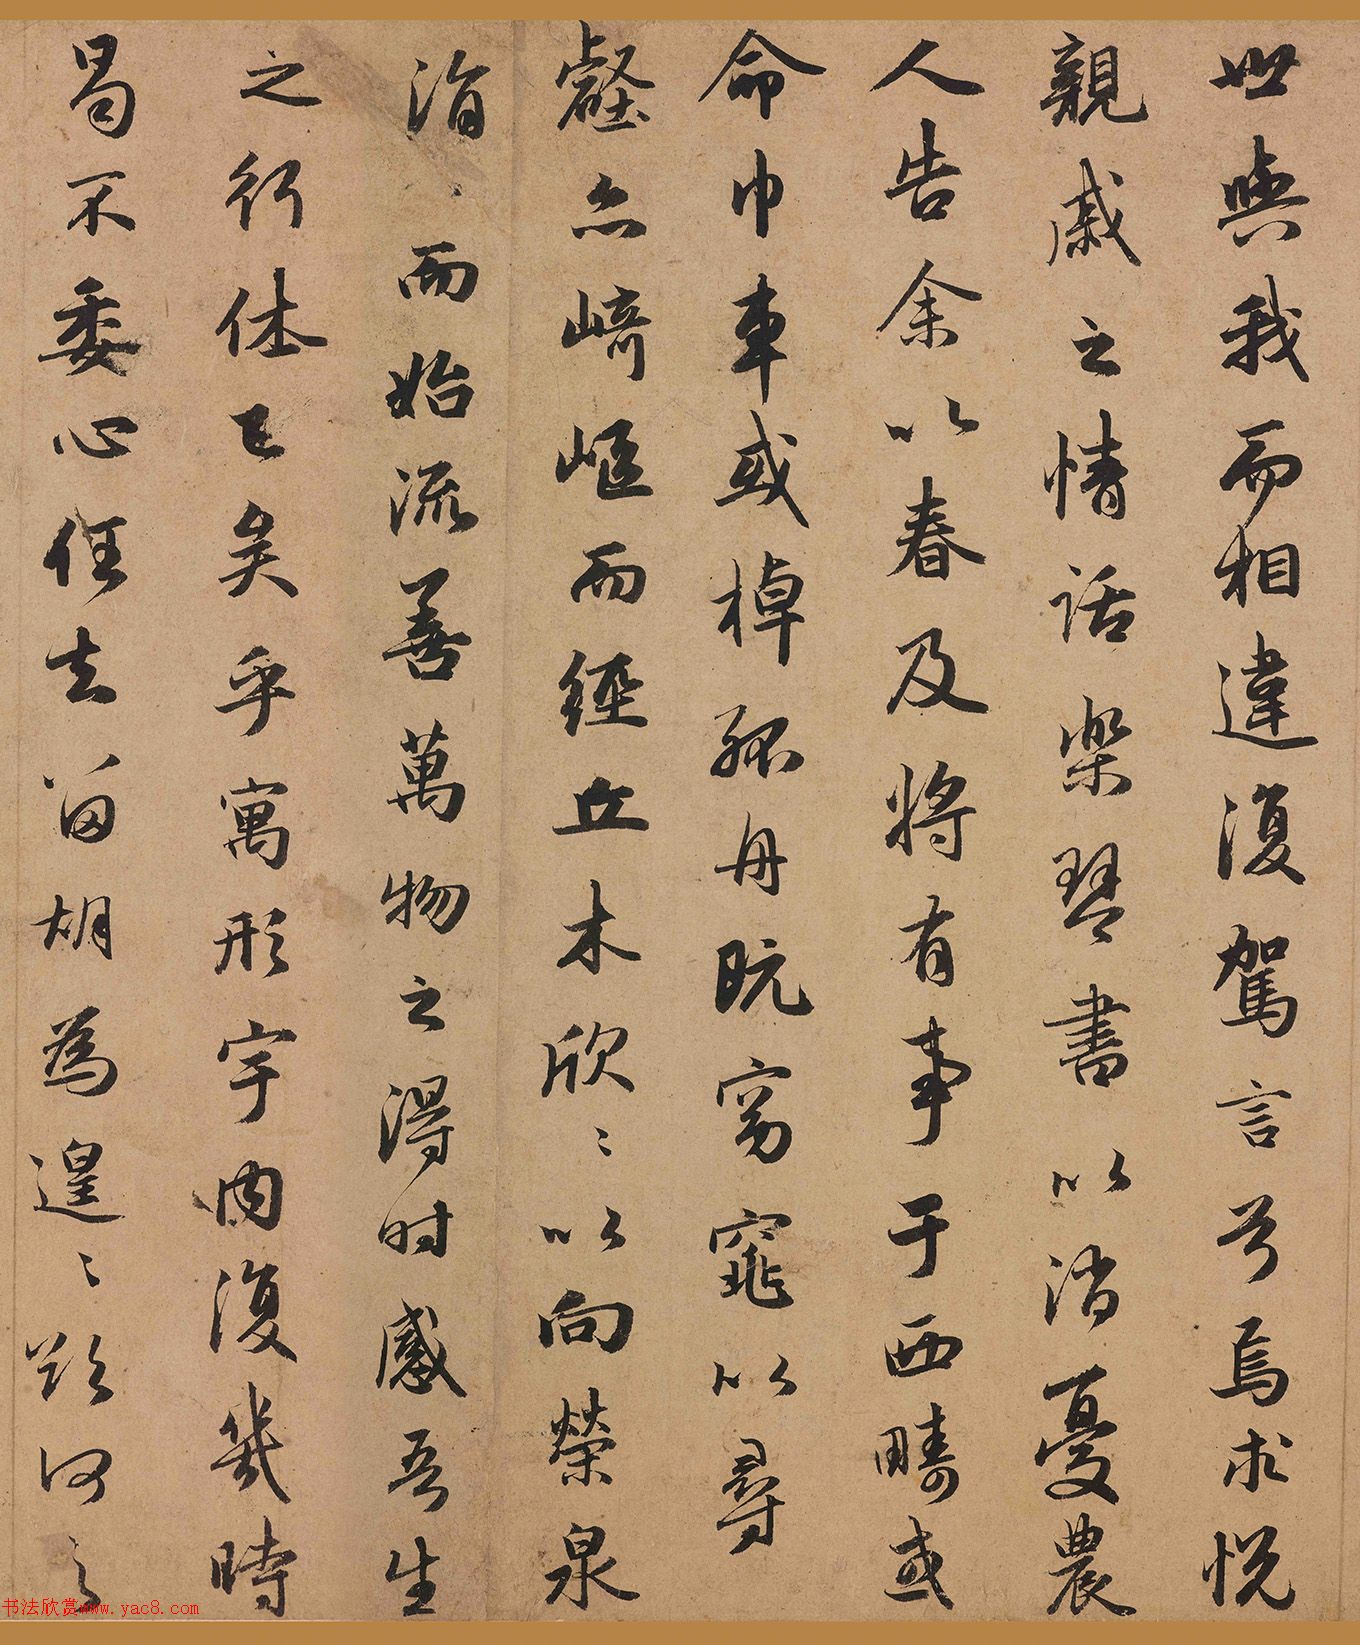 世與我而相違復駕言兮焉求悅
親戚之情話樂琴書以消憂農
人告余以春及將有事于西疇或
命巾車或棹孤舟既窈窕以尋
壑亦崎嶇而經丘木欣〻以向榮泉
涓〻而始流善萬物之得時感吾生
之行休已矣乎寓形宇內復幾時
曷不委心任去留胡為遑〻欲何之
书法欣赏www.yac8.com